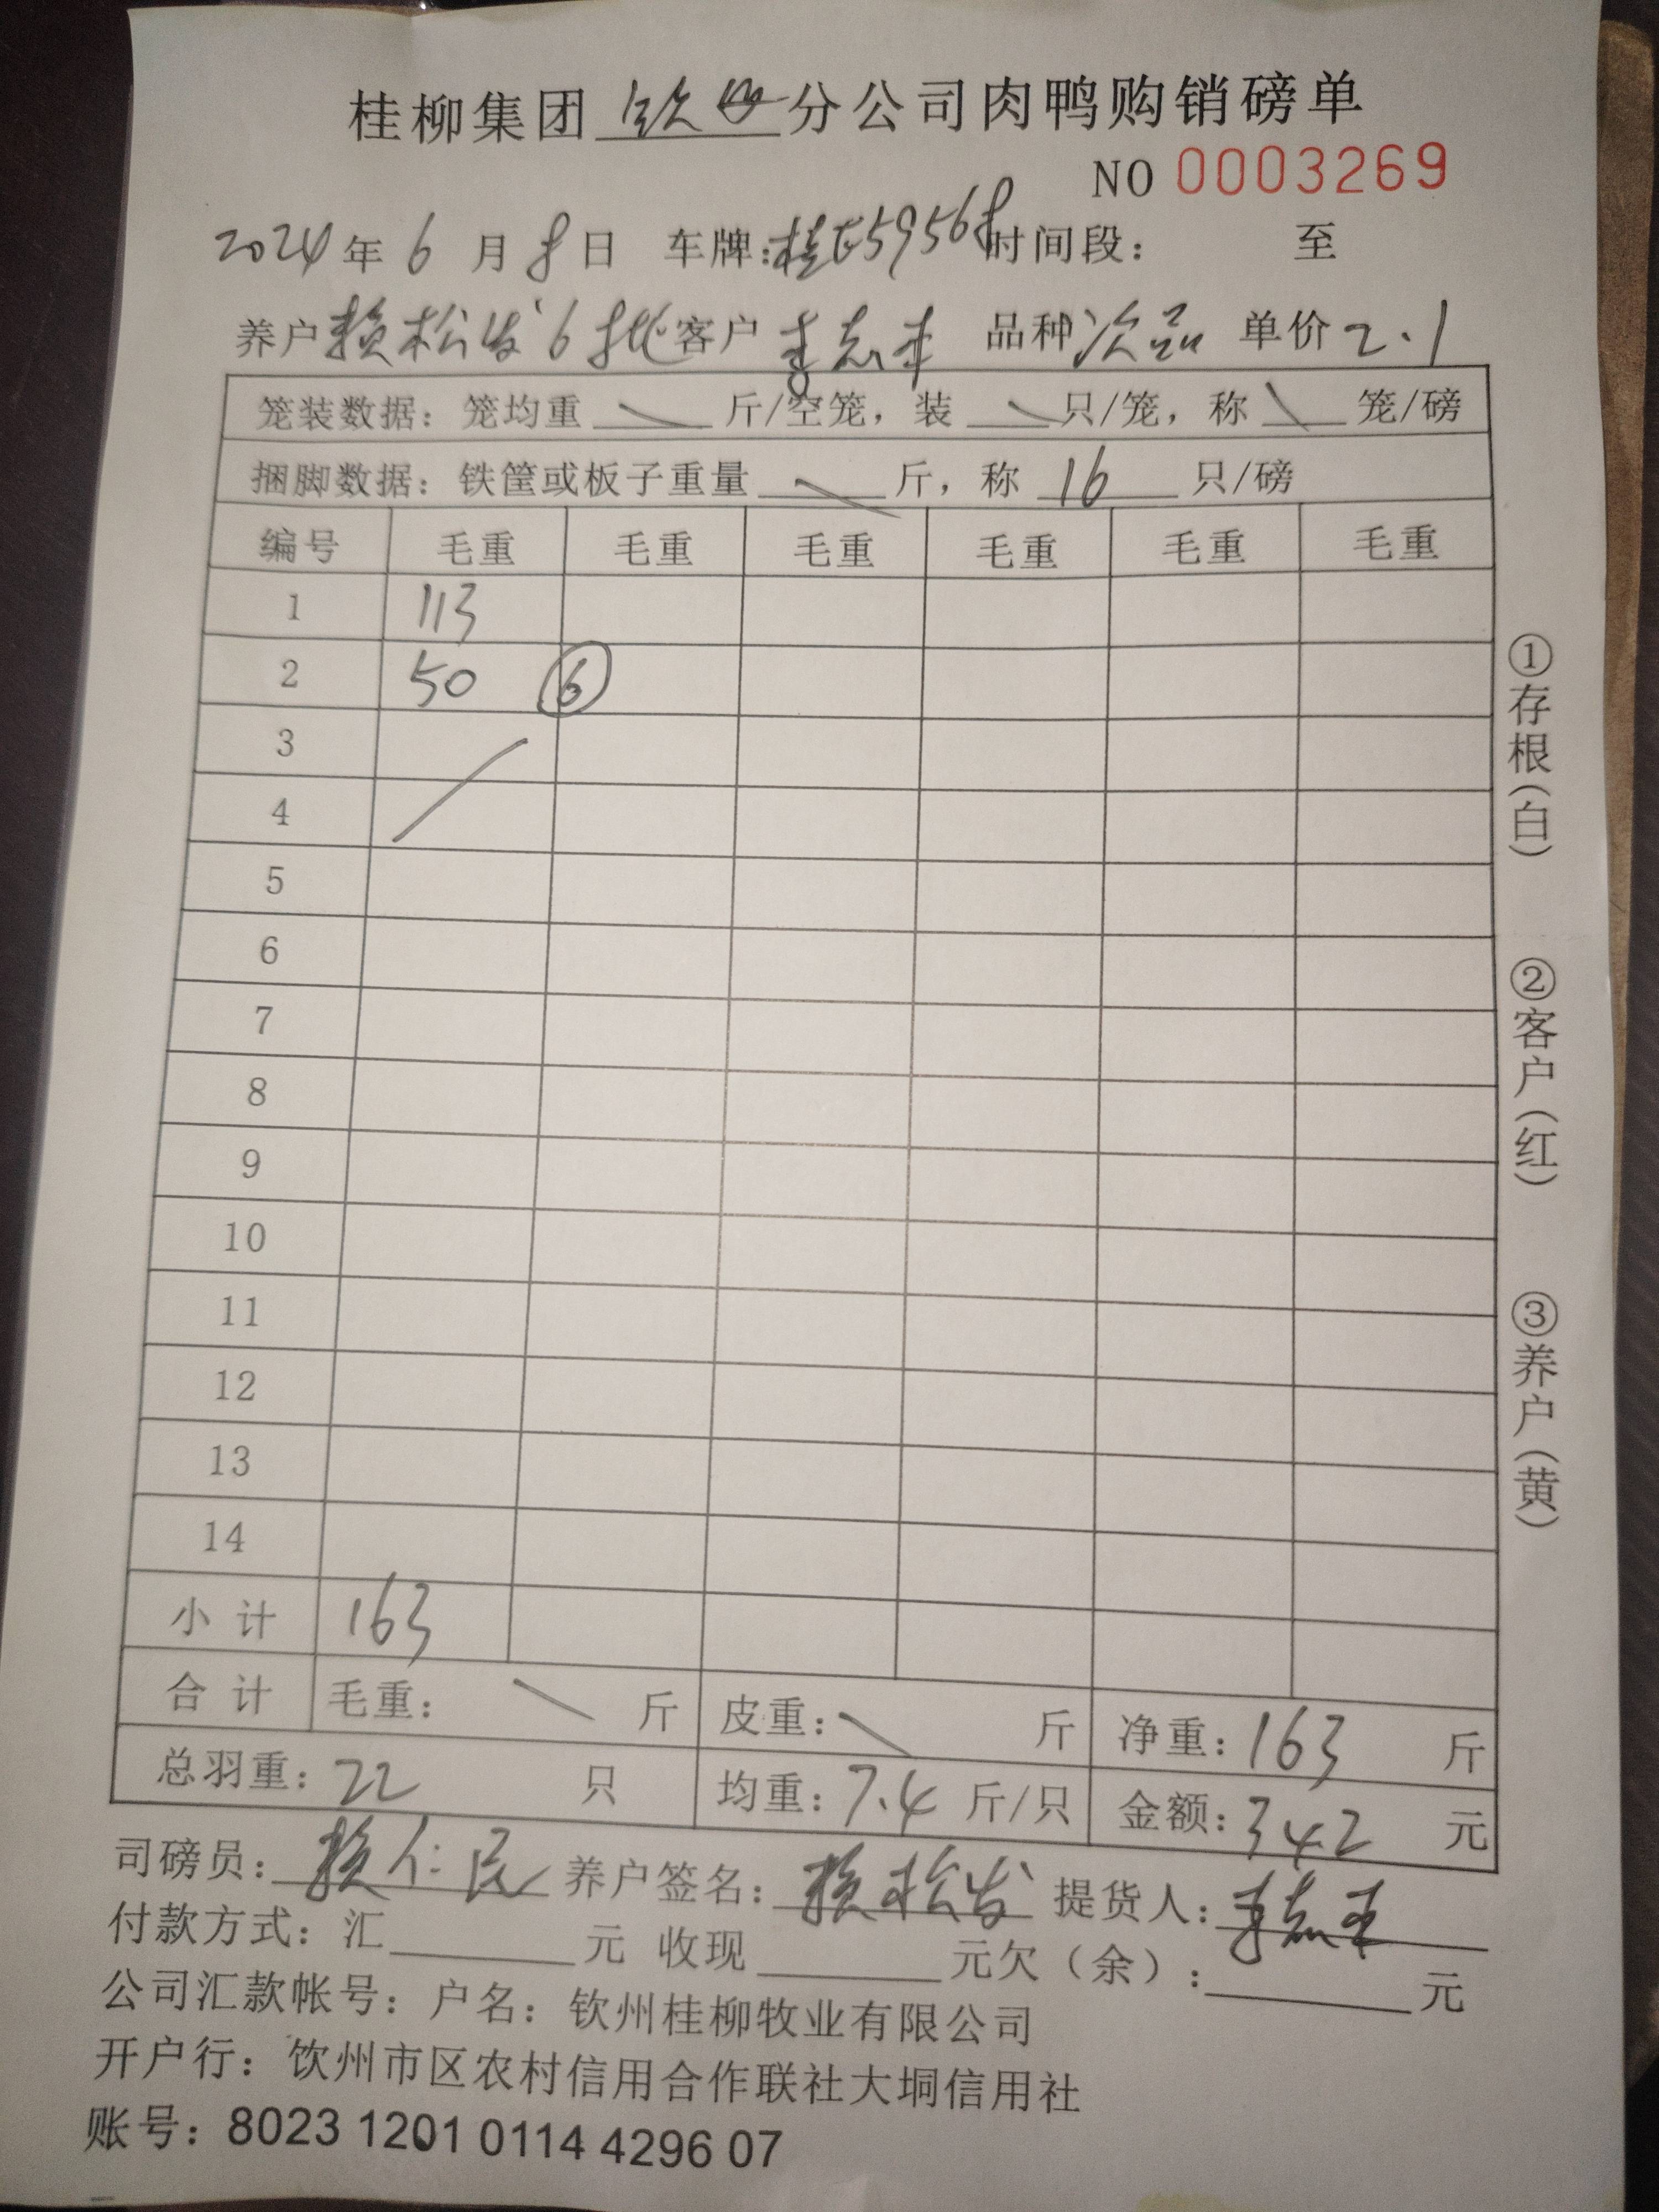 桂柳集团 钦州 分公司肉鸭购销磅单
NO 0003269
2024 年 6 月 8 日 车牌: 桂 59568 时间段: 至
养户 赖松发 6批 客户 李志 品种 次品 单价 2.1
笼装数据: 笼均重 斤/空笼, 装 只/笼, 称 笼/磅
捆脚数据: 铁筐或板子重量 斤, 称 16 只/磅
编号 毛重 毛重 毛重 毛重 毛重 毛重
1 113
2 50 ⑥
3
4
5
6
7
8
9
10
11
12
13
14
小计 163
合计 毛重: 斤 皮重: 斤 净重: 163 斤
总羽重: 22 只 均重: 7.4 斤/只 金额: 342 元
司磅员: 赖仁民 养户签名: 赖松发 提货人: 李志
付款方式: 汇 元 收现 元欠（余）: 元
公司汇款帐号: 户名: 钦州桂柳牧业有限公司
开户行: 饮州市区农村信用合作联社大垌信用社
账号: 8023 1201 0114 4296 07
①存根(白) ②客户(红) ③养户(黄)